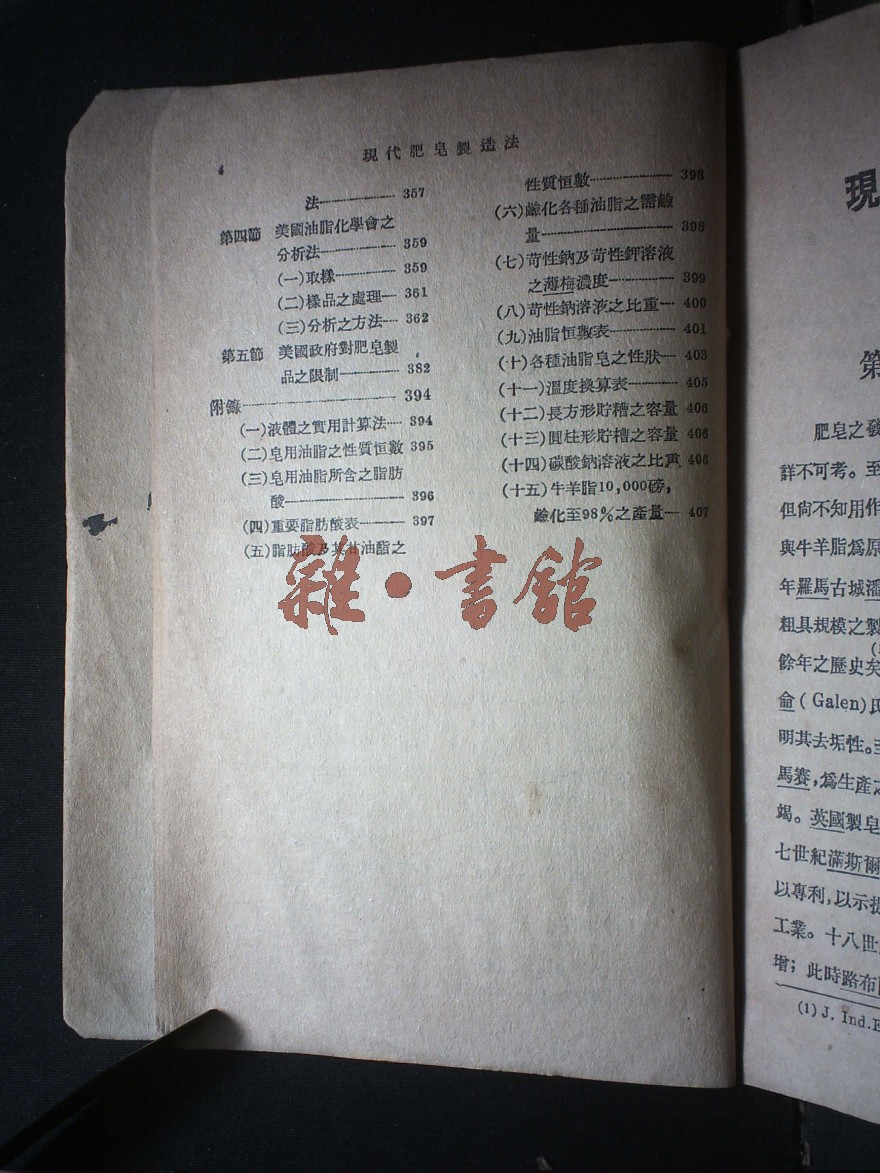 4
現代肥皂製造法
法 357
第四節 美國油脂化學會之
分析法 359
(一)取樣 359
(二)樣品之處理 361
(三)分析之方法 362
第五節 美國政府對肥皂製
品之限制 382
附錄 394
(一)液體之實用計算法 394
(二)皂用油脂之性質恒數 395
(三)皂用油脂所含之脂肪
酸 396
(四)重要脂肪酸表 397
(五)脂肪酸及其甘油酯之
性質恒數 398
(六)鹼化各種油脂之需鹼
量 398
(七)苛性鈉及苛性鉀溶液
之薄梅濃度 399
(八)苛性鈉溶液之比重 400
(九)油脂恒數表 401
(十)各種油脂皂之性狀 403
(十一)溫度換算表 405
(十二)長方形貯糟之容量 406
(十三)圓柱形貯槽之容量 406
(十四)碳酸鈉溶液之比重 406
(十五)牛羊脂10,000磅,
鹼化至98%之產量 407
雜·書館
現
第
肥皂之發
詳不可考。至
但尙不知用作
與牛羊脂爲原
年羅馬古城潘
粗具規模之製
餘年之歷史矣
侖(Galen)氏
明其去垢性。至
馬賽,爲生產之
竭。英國製皂
七世紀滿斯爾
以專利,以示提
工業。十八世
增;此時路布
(1) J. Ind. E